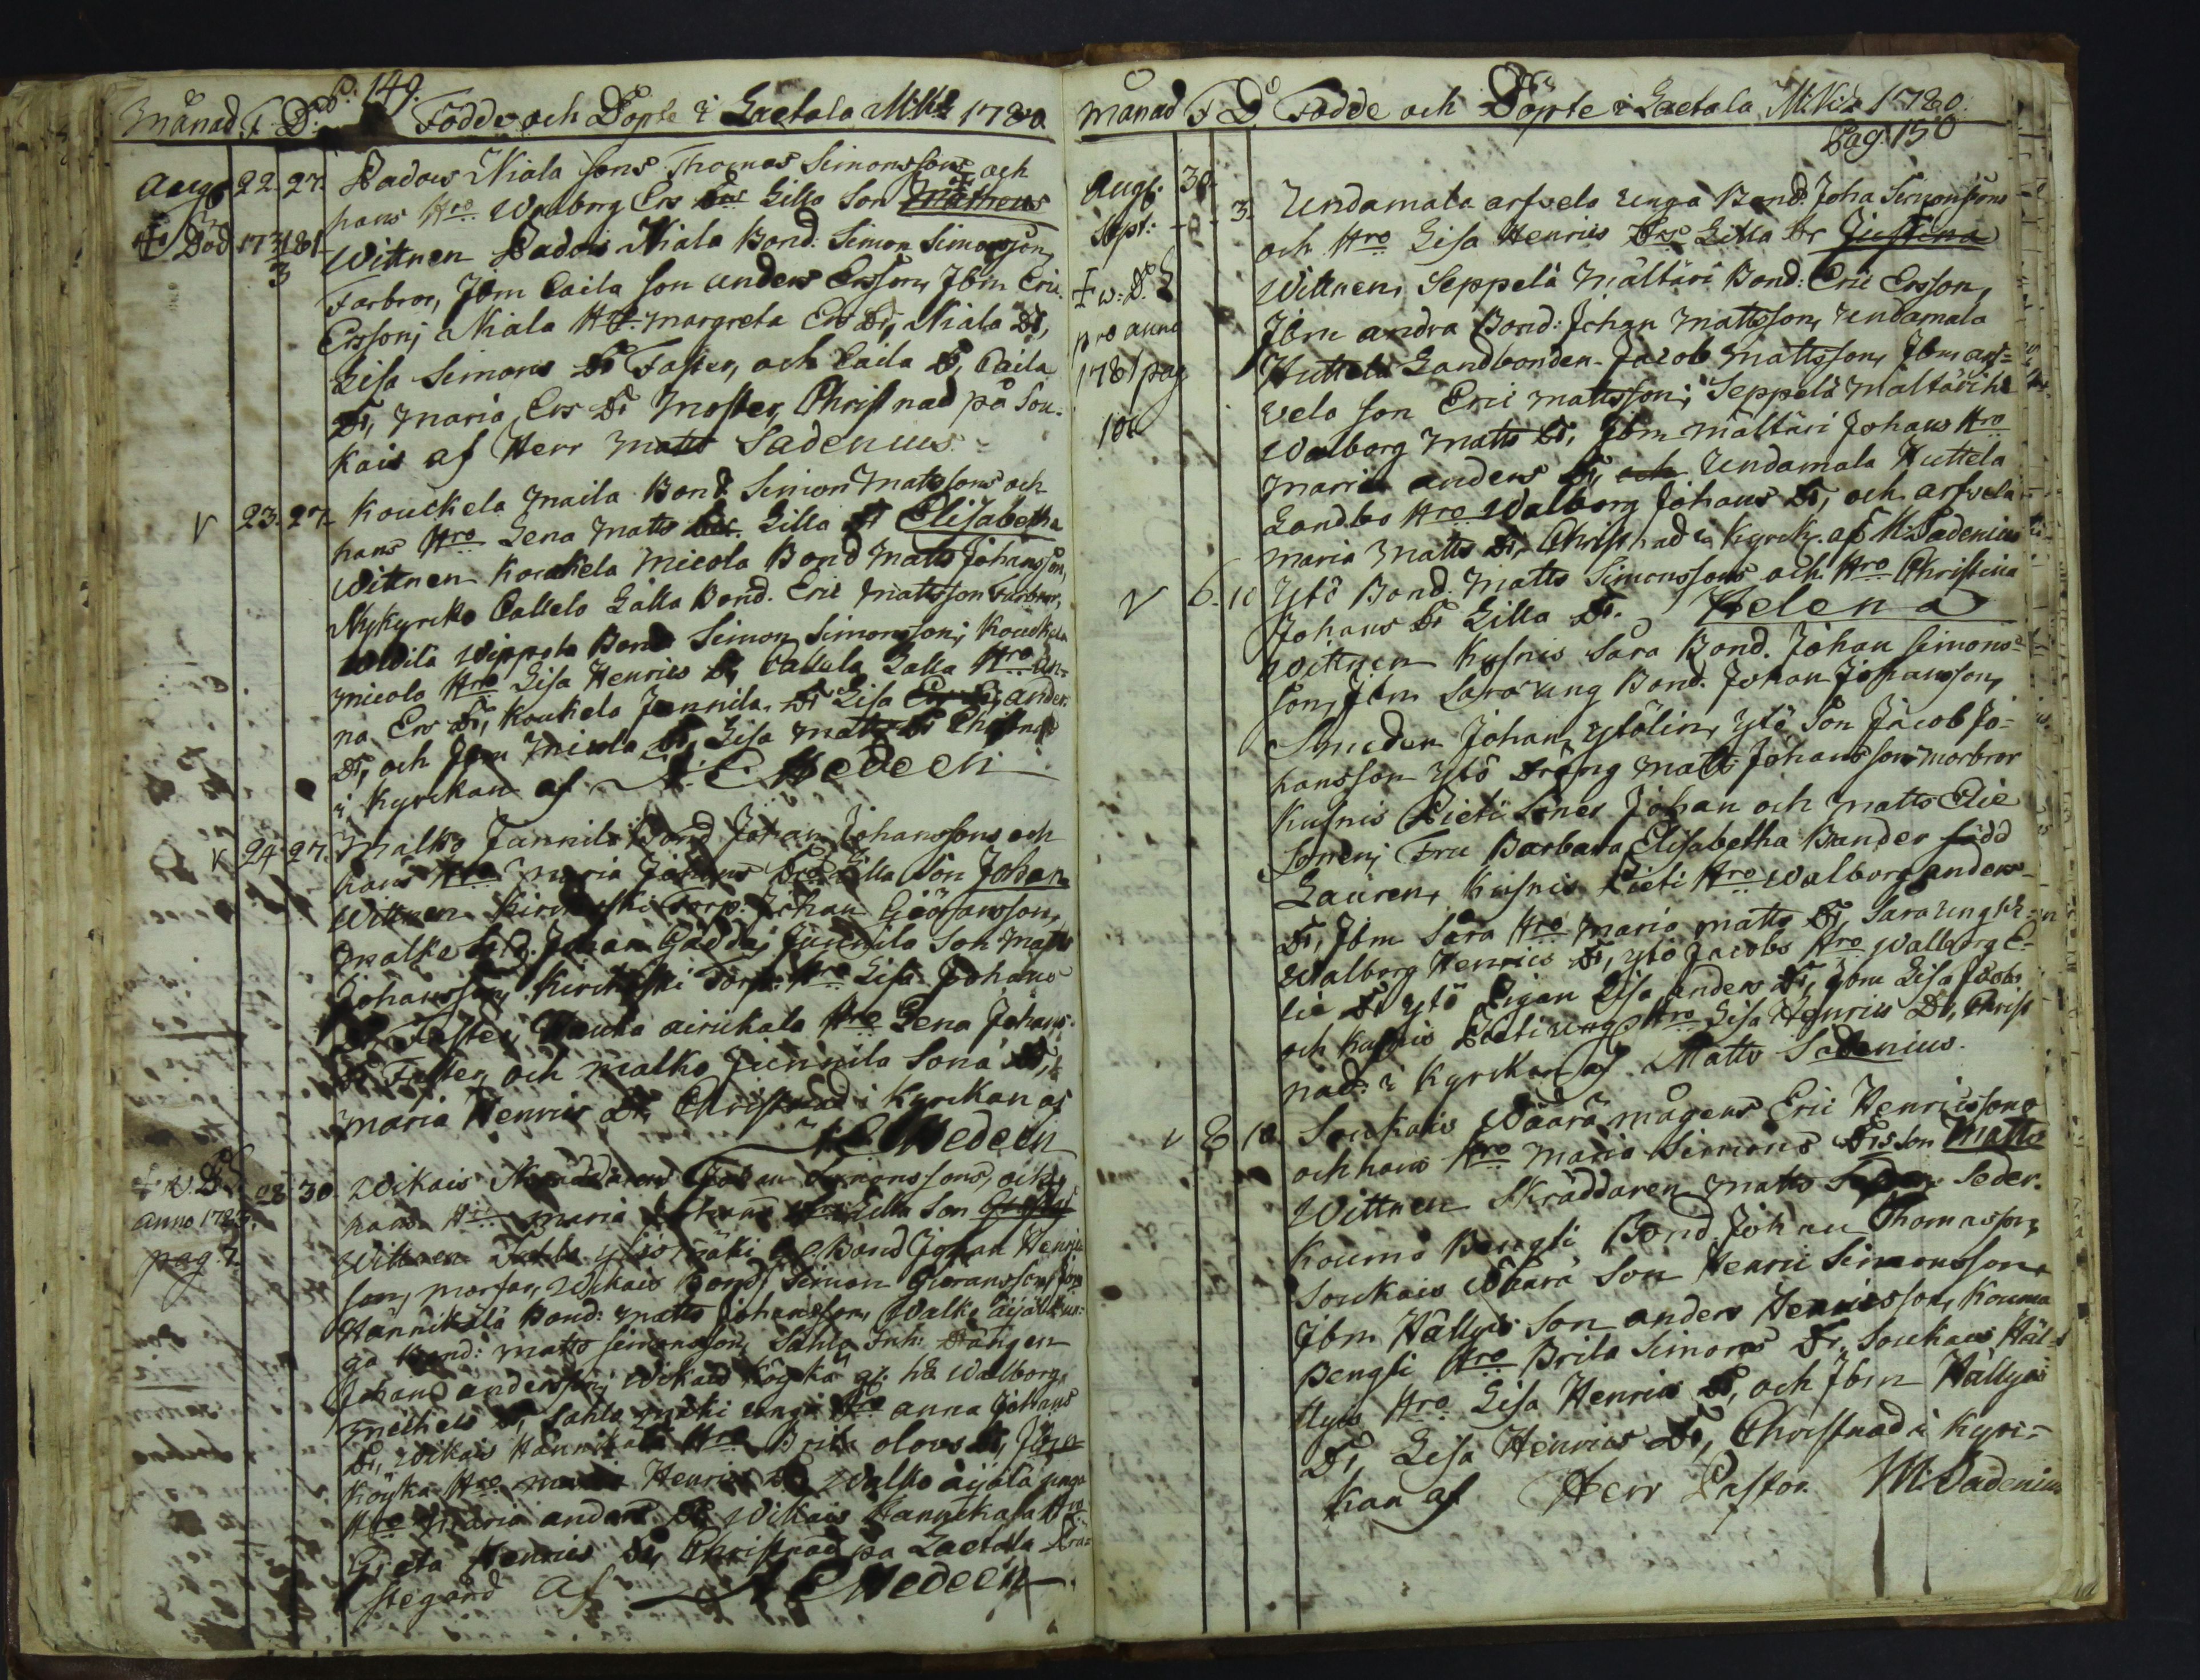 P: 149.
Månad. F. D. Födde och Döpte i Laetala Mk:k 1780
Aug. 22. 27. Padois Niala sons Thomas Simonssons och
hans Hro Walborg Ers Drs Lilla Son Matheus
Död 17 3/3 81 Wittnen Padois Niala Bond. Simon Simonsson,
Farbror, Jbm Caila son Anders Ersson, Jbm Eric
Ersson; Niala H. Margreta Ers Dr, Niala Dr,
Lisa Simons Dr Faster, och Caila D, Caila
Dr, Maria Ers Dr Moster, Christnad på Sou-
kais af Herr Matts Sadenius.
V 23. 27. Kouckela Maila Bond Simon Matssons och
hans Hro Lena Matts Lilla Dr Elisabetha
Wittnen Kouckela Micola Bond Matts Johansson,
Nykyrcko Callelo Lalla Bond. Eric Mattsson Farbror,
Wippola Bond Simon Simonsson; Kouckela
Micola Hro Lisa Henrics Dr Callela Lalla Hro An-
na Ers Dr, Koukela Junnila Dr Lisa Anders
Dr, och Jbm Micola Dr, Lisa Matts Dr Christnad
i Kyrckan af A. E. Hedeen
V 24. 27. Malko Junnila Bond Johan Johanssons och
hans Hro Maria Johans Lilla Son Johan
Wittnen Torp. Johan Göransson,
Malko Johan Gädda; Junnila Son Matts
Johansson, Torp. Hro Lisa Johans
Dr Faster, Hro Lena Johans
Dr Faster, och Malko Junnila Sona Dr,
Maria Henrics Dr, Christnad i Kyrckan af
A. E. Hedeen
28. 30. Wikais Skräddarens Johan Simonssons, och
Anno 1783. hans Hro Maria Johans Lilla Son
pag. 7. Wittnen Sahla mäki Bond Johan Henrics
son, morfar, Wikais Bond Simon Göransson,
Hännikälä Bond: Matts Johansson, Walko Äijälä un-
ga Bond: Matts Simonsson, Sahla Drängen
Johan Andersson; Wikais Köykä Walborg
Michels Dr, Sahla mäki unga Hro Anna Johans
Dr, Wikais Hännikälä Hro Brita Olovs Dr,
Köykä Hro Maria Henrics Dr Walko Äijälä unga
Hro Maria Anders Dr Wikais Hannikala
Greta Henrics Dr, Christnad på Laetala Prä-
stegård af A E Hedeen
Månad F D Födde och Döpte i Laetala Mk:k 1780.
Pag. 150
Augl. 30.
Sept: 3. Undamala arfvela unga Bond: Joha Simonssons
och Hro Lisa Henrics Lilla Dr Justina
Wittnen, Seppelä Mältäri Bond: Eric Ersson,
pro anno Jbm andra Bond: Johan Mattsson, Undamala
1781 pag Huttela Landbonden Jacob Mattsson, Jbm arf-
vela son Eric Mattsson; Seppelä Mältäri
Walborg Matts Dr, Jbm Mältäri Johans Hro
Maria Anders Dr, och Undamala Huttela
Landbo Hro Walborg Johans Dr, och arfvela
Maria Matts Dr, Christnad i Kyrck. af M. Sadenius
V 6. 10 Ytö Bond. Matts Simonssons och Hro Christina
Johans Dr Lilla Dr. Helena
Wittnen Kusnis Sara Bond. Johan Simons-
son, Jbm Sara ung Bond. Johan Johansson,
Smeden Johan Ytölin, Ytö Son Jacob Jo-
hansson Ytö Dräng Matts Johansson Morbror
Kusnis Pieti Söner Johan och Matts Elie
Söner; Fru Barbara Elisabetha Brander född
Lauren, Kusnis Pieti Hro Walborg Anders
Dr, Jbm Sara Hro Maria Matts Dr, Sara ung
Walborg Henrics Dr, Ytö Jacobs Hro Walborg E-
lie Dr Ytö Pigan Lisa Anders Dr, Jbm Lisa Jacobs
och Kusnis Pieti unga Hro Lisa Henrics Dr, Christ
nad. i Kyrckan af Matts Sadenius.
V 8 10 Soukais Wäärä mågens Eric Henricssons
och hans Hro Maria Simons Drs Son Matts
Wittnen Skräddaren Matts Seder.
Koumo Bengti Bond. Johan Thomasson,
Soukais Wäärä Son Henric Simonsson,
Jbm Hällyis Son Anders Henricsson, Kouma
Bengti Hro Brita Simons Dr, Soukais Häl-
llyis Hro Lisa Henrics Dr, och Jbm Hällyis
Dr, Lisa Henrics Dr, Christnad i Kyrc-
kan af Herr Pastor M. Sadenius